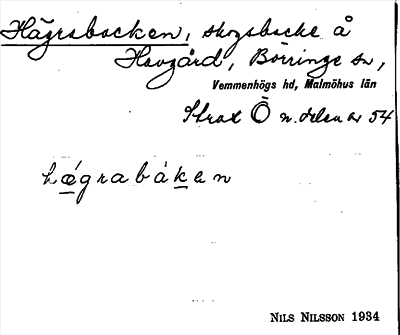 Hägrabacken, skogsbacke å
Havgård, Börringe sn,
Vemmenhögs hd, Malmöhus län
Strax Ö n. delen av 54
hǽgrabákan
NILS NILSSON 1934